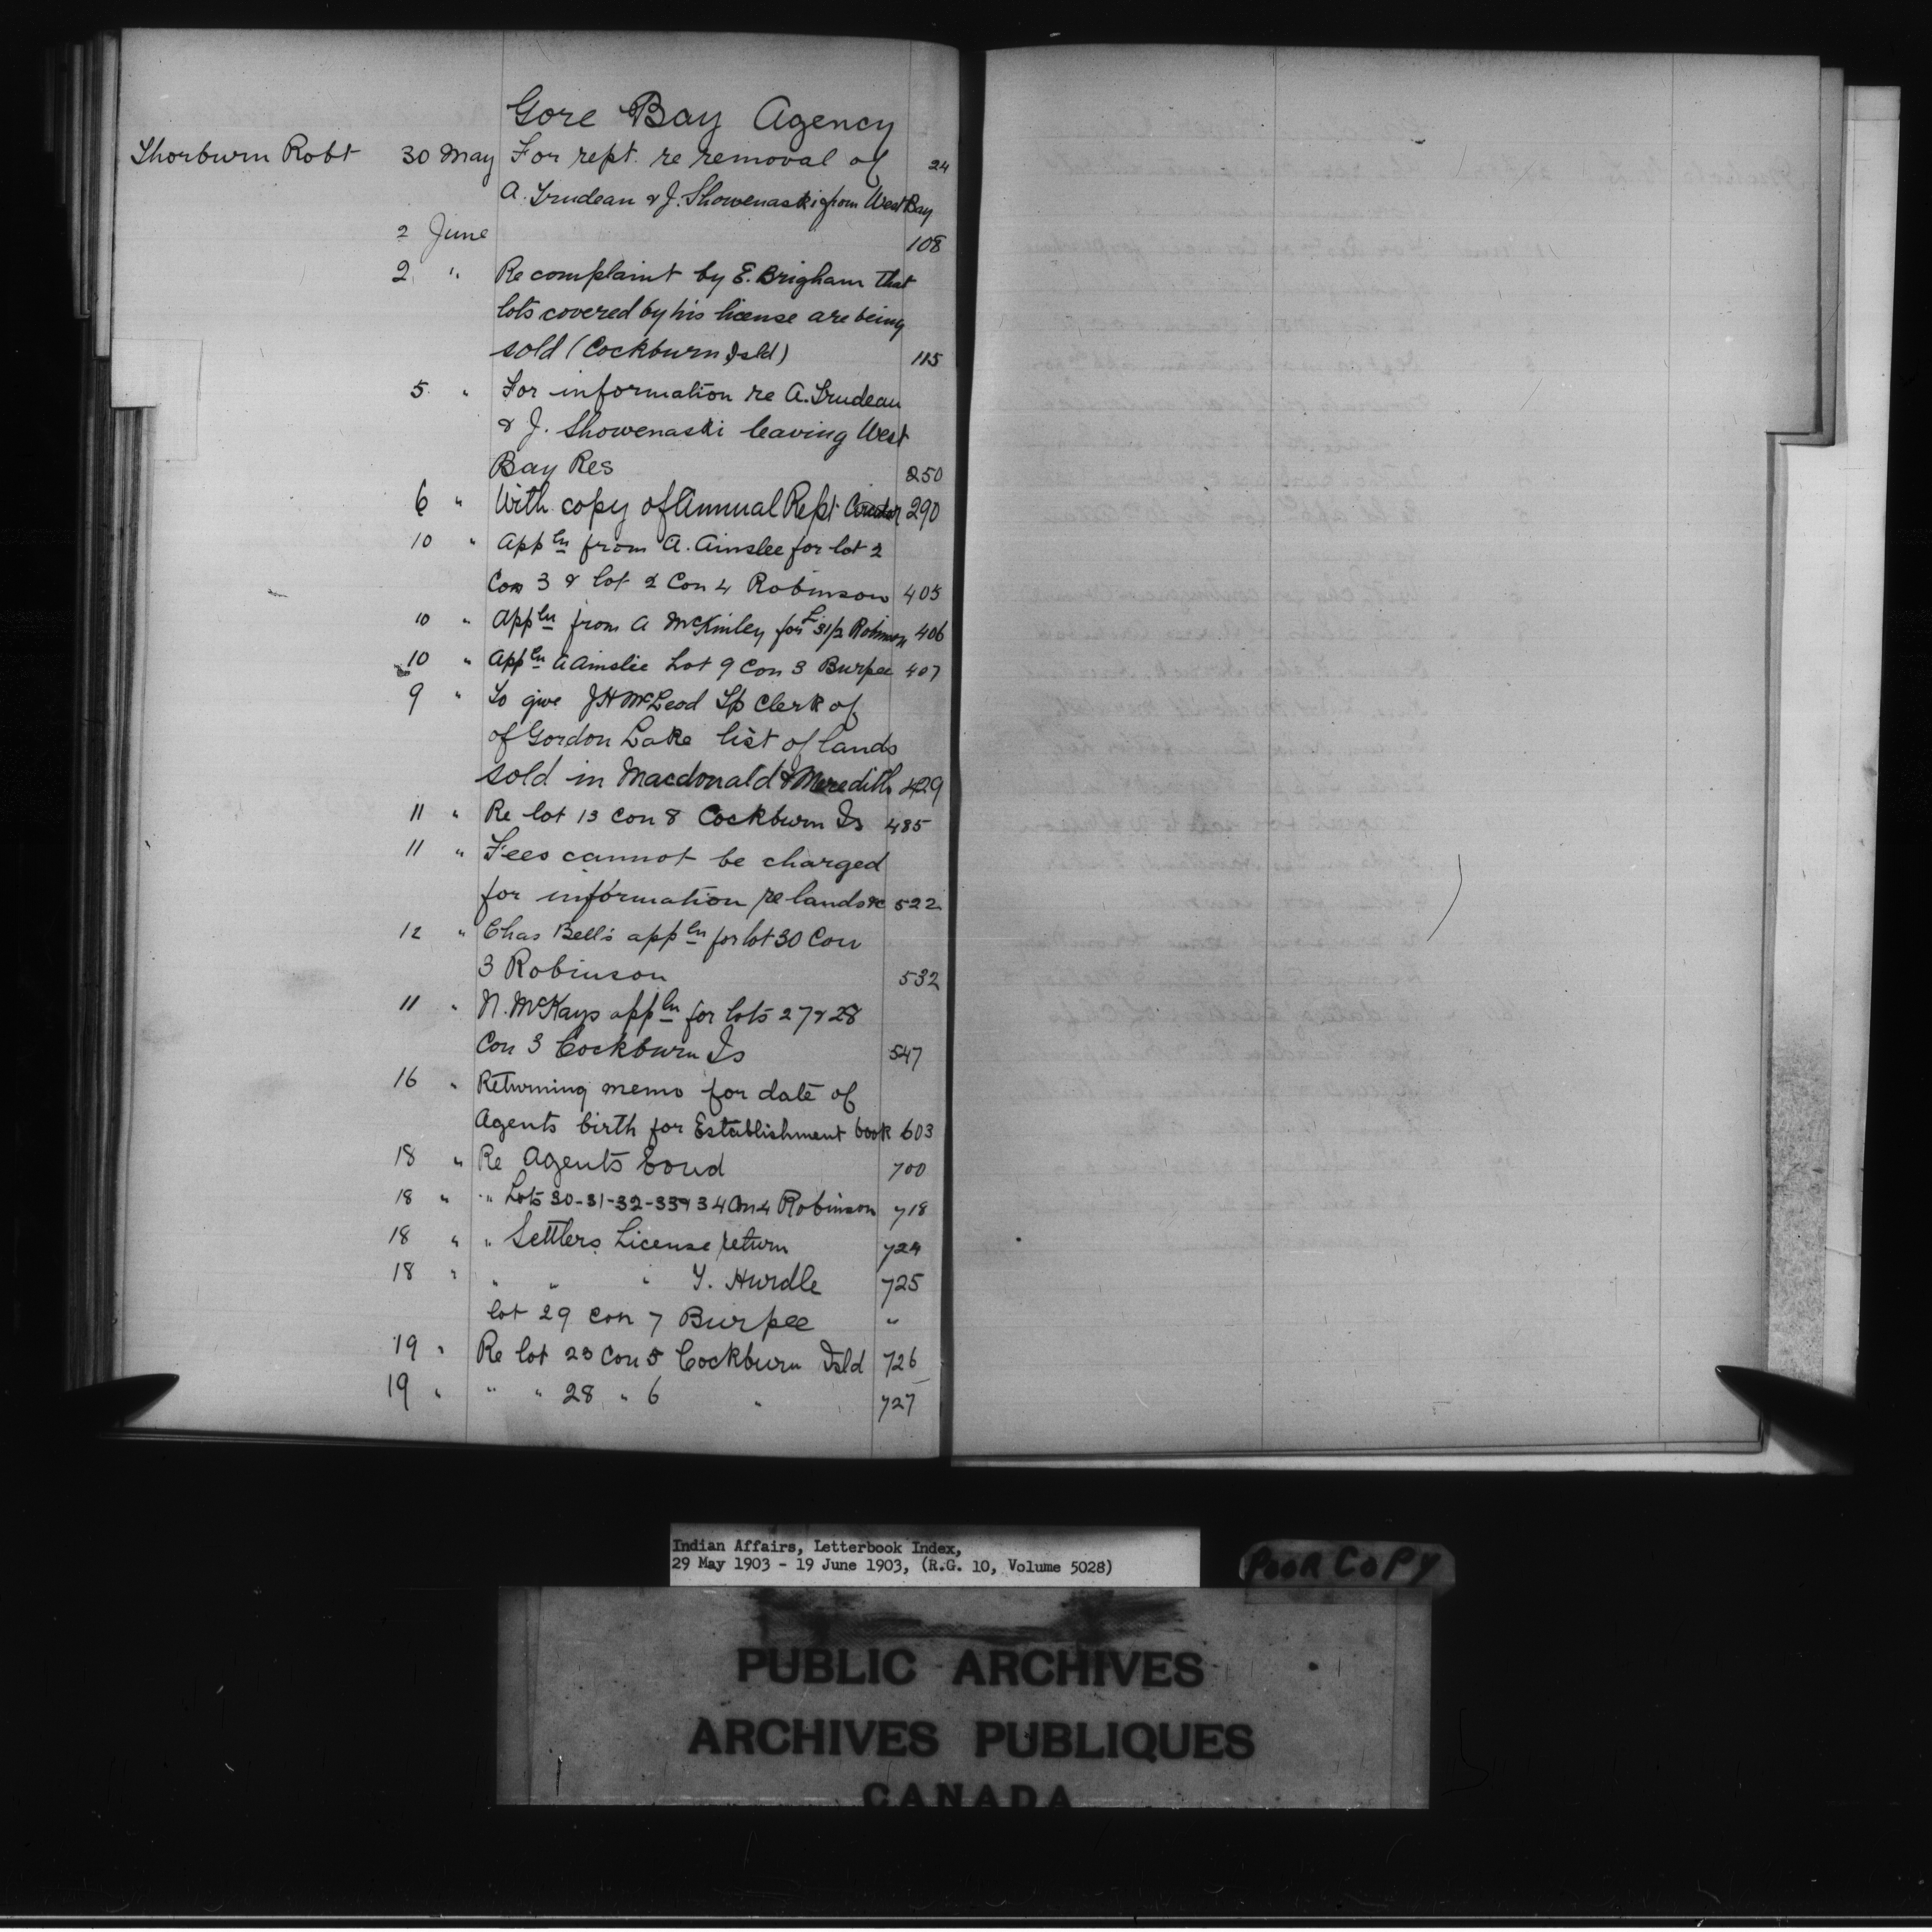 Gore Bay Agency
Thorburn Robt 30 May For rept. re removal of 24
A. Trudeau & J. Showenaski from West Bay
2 June 108
2 " Re complaint by E. Brigham that
lots covered by his license are being
sold (Cockburn Isld) 115
5 " For information re A. Trudeau
& J. Showenaski leaving West
Bay Res 250
6 " With copy of Annual Rept 290
10 " Appln from A. Ainslee for lot 2
Con 3 & lot 2 Con 4 Robinson 405
10 " Appln from A McKinley for L 31/2 Robinson 406
10 " Appln A Ainslie Lot 9 Con 3 Burpee 407
9 " To give J H McLeod Tp Clerk of
of Gordon Lake list of lands
sold in Macdonald & Meredith 429
11 " Re lot 13 Con 8 Cockburn Is 485
11 " Fees cannot be charged
for information re lands &c 522
12 " Chas Bell's appln for lot 30 Con
3 Robinson 532
11 " N. McKays appln for lots 27 & 28
Con 3 Cockburn Is 547
16 " Returning memo for date of
Agents birth for Establishment book 603
18 " Re Agents bond 700
18 " " Lots 30-31-32-33 & 34 Con 4 Robinson 718
18 " " Settlers License return 724
18 " " " " Y. Hurdle 725
lot 29 Con 7 Burpee "
19 " Re lot 23 Con 5 Cockburn Isld 726
19 " " " 28 " 6 " 727
Indian Affairs, Letterbook Index,
29 May 1903 - 19 June 1903, (R.G. 10, Volume 5028)
POOR COPY
PUBLIC ARCHIVES
ARCHIVES PUBLIQUES
CANADA